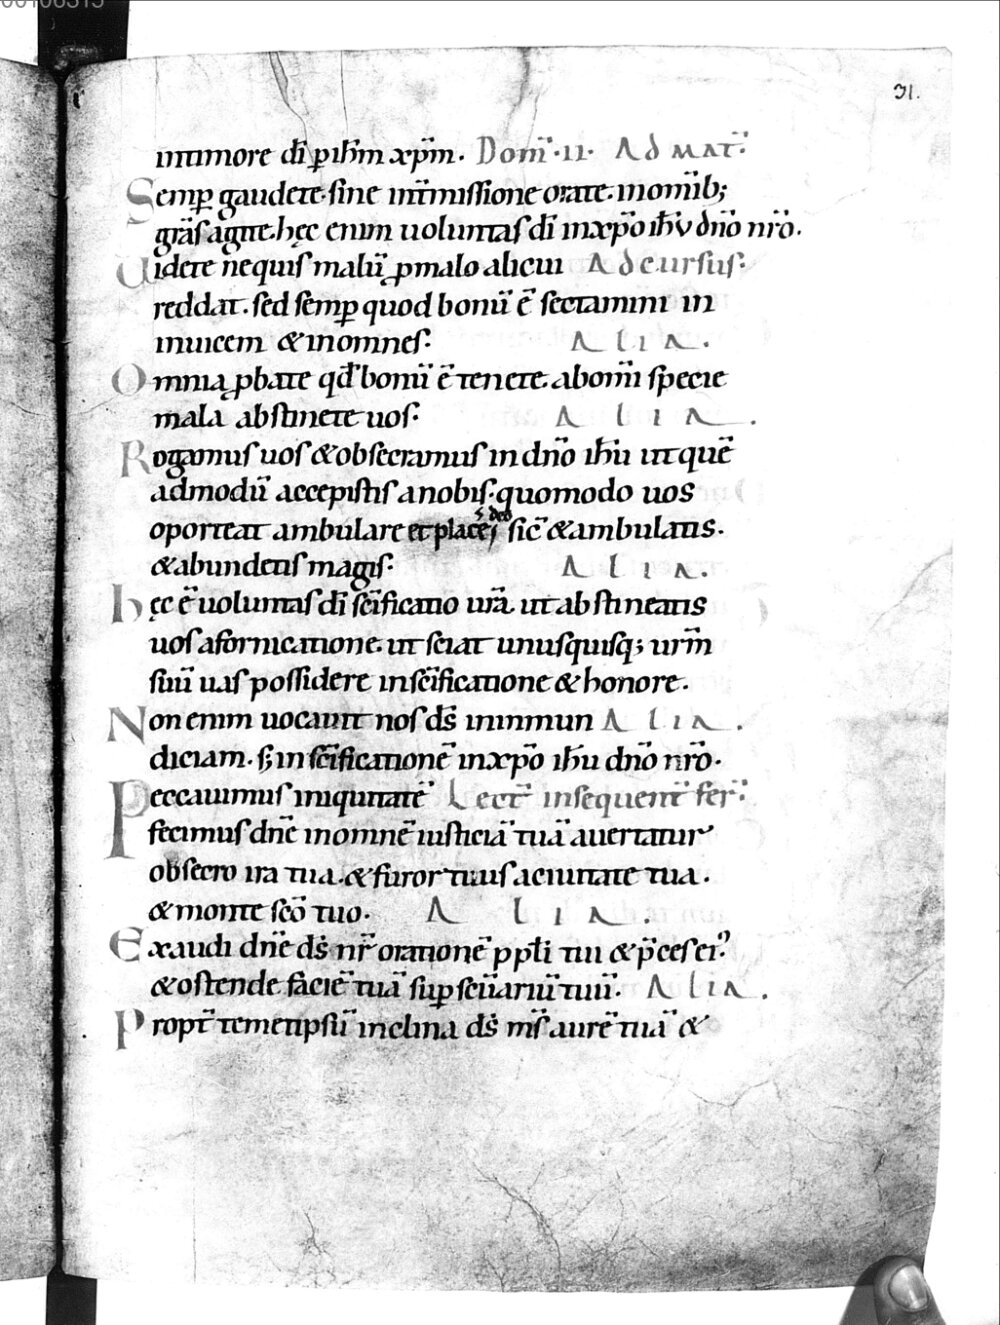 31.
intimore dī ꝑ ih̄m xp̄m. Dom̄ ·II· Ad mat̄:
Semꝑ gaudete. sine int̄missione orate. inomīb;
grās agite. hęc enim uoluntas dī inxp̄o ih̄u dn̄o nr̄o.
Uidete nequis malū ꝓmalo alicui Adcursus:
reddat. sed semꝑ quod bonū ē sectamini in
inuicem & inomnes: Alia.
Omnia ꝓbate qd̄ bonū ē tenete. abomī specie
mala abstinete uos: Alia.
Rogamus uos & obsecramus indn̄o ih̄u ut quē
admodū accepistis anobis. quomodo uos
oporteat ambulare et place deo sic̄ & ambulatis.
& abundetis magis: Alia.
hęc ē uoluntas dī sc̄ificatio ur̄a. ut abstineatis
uos afornicatione. ut sciat unusquisq; urm̄
suū uas possidere insc̄ificatione & honore.
Non enim uocauit nos ds̄ ininmun Alia.
diciam. s; in sc̄ificationē inxp̄o ih̄u dn̄o nr̄o.
Peccauimus iniquitatē Lect̄ insequent̄ fer̄:
fecimus dn̄e inomnē iusticiā tuā auertatur
obsecro ira tua. & furor tuus aciuitate tua.
& monte sc̄o tuo. Alia.
Exaudi dn̄e ds̄ nr̄ orationē ppl̄i tui & p̄ces ei:
& ostende faciē tuā suꝑ sc̄uariū tuū. Alia.
Propt̄ temetipsū inclina ds̄ ms̄ aurē tuā &